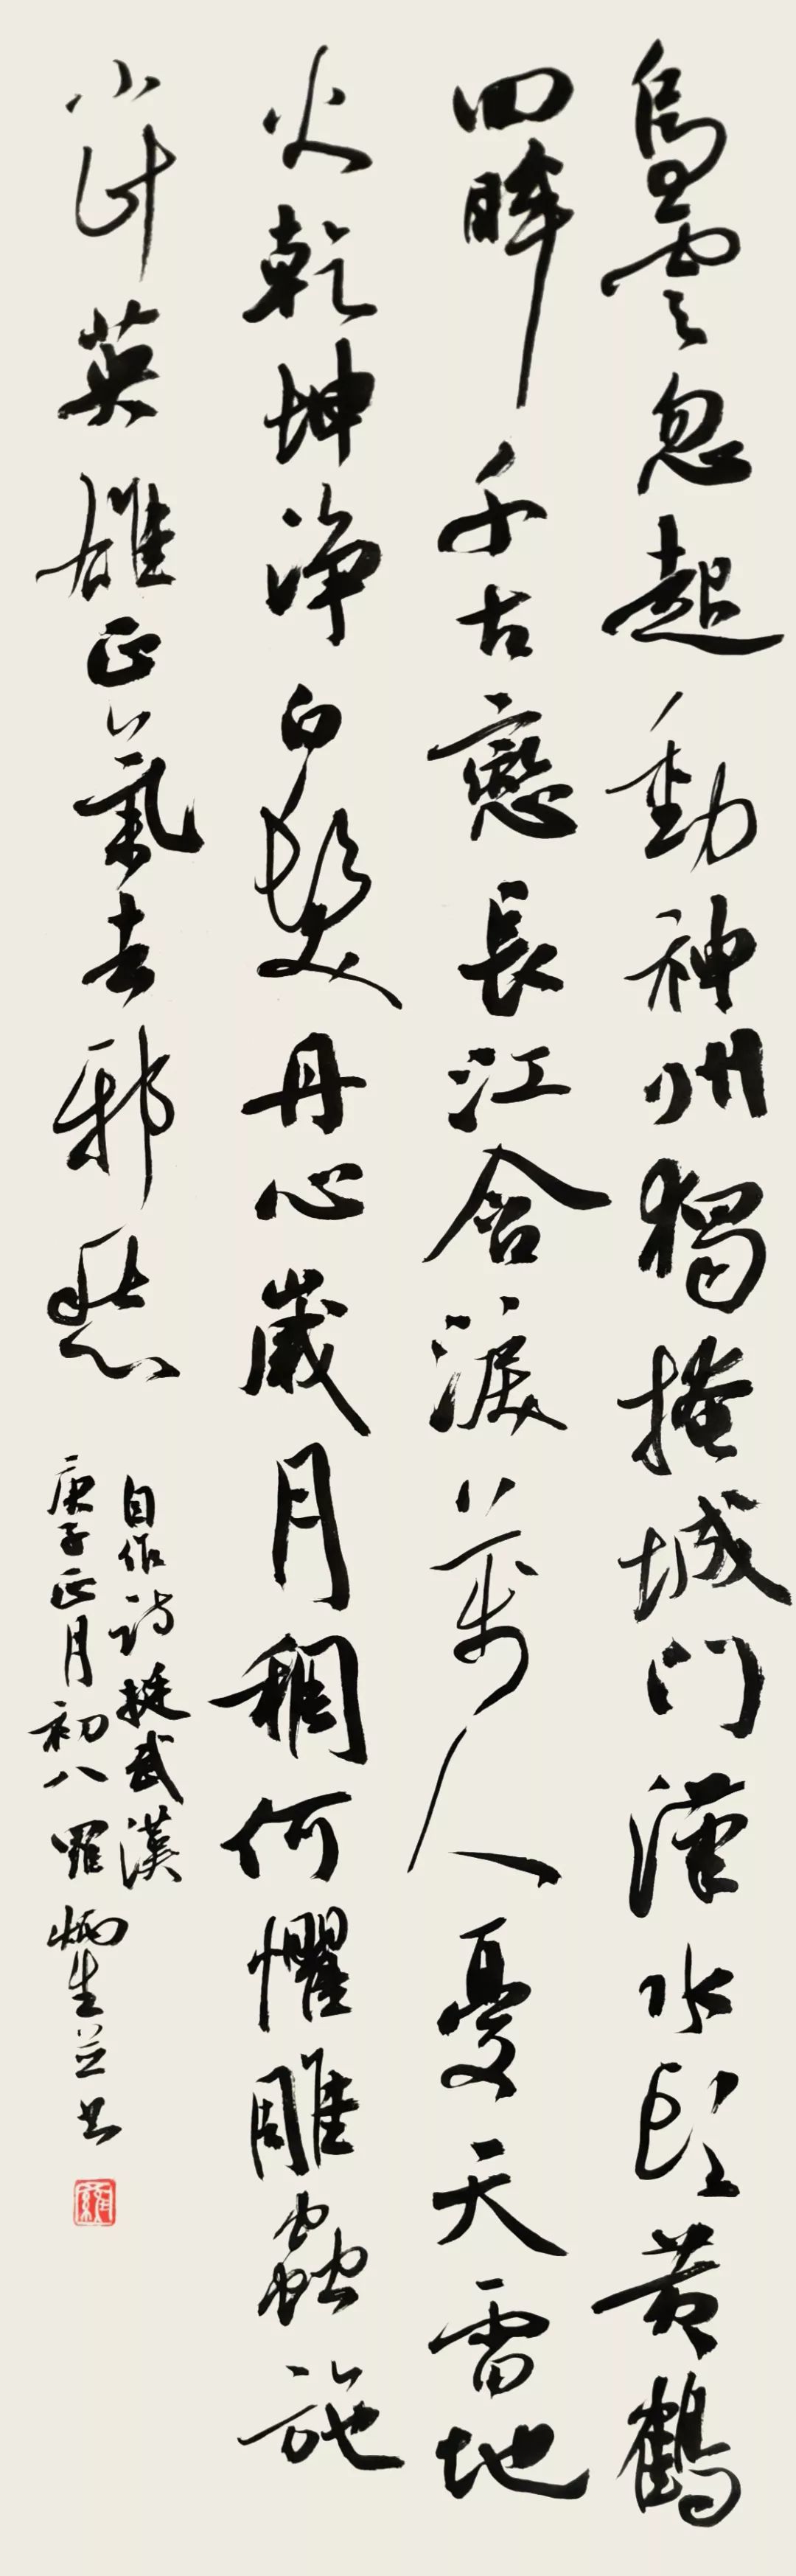 烏雲忽起動神州獨掩城門漢水望黃鶴
回眸千古戀長江含淚萬人憂天雷地
火乾坤淨白髮丹心歲月稠何懼雕蟲施
小計英雄正氣去邪愁
自作詩挺武漢
庚子正月初八羅炳生並書